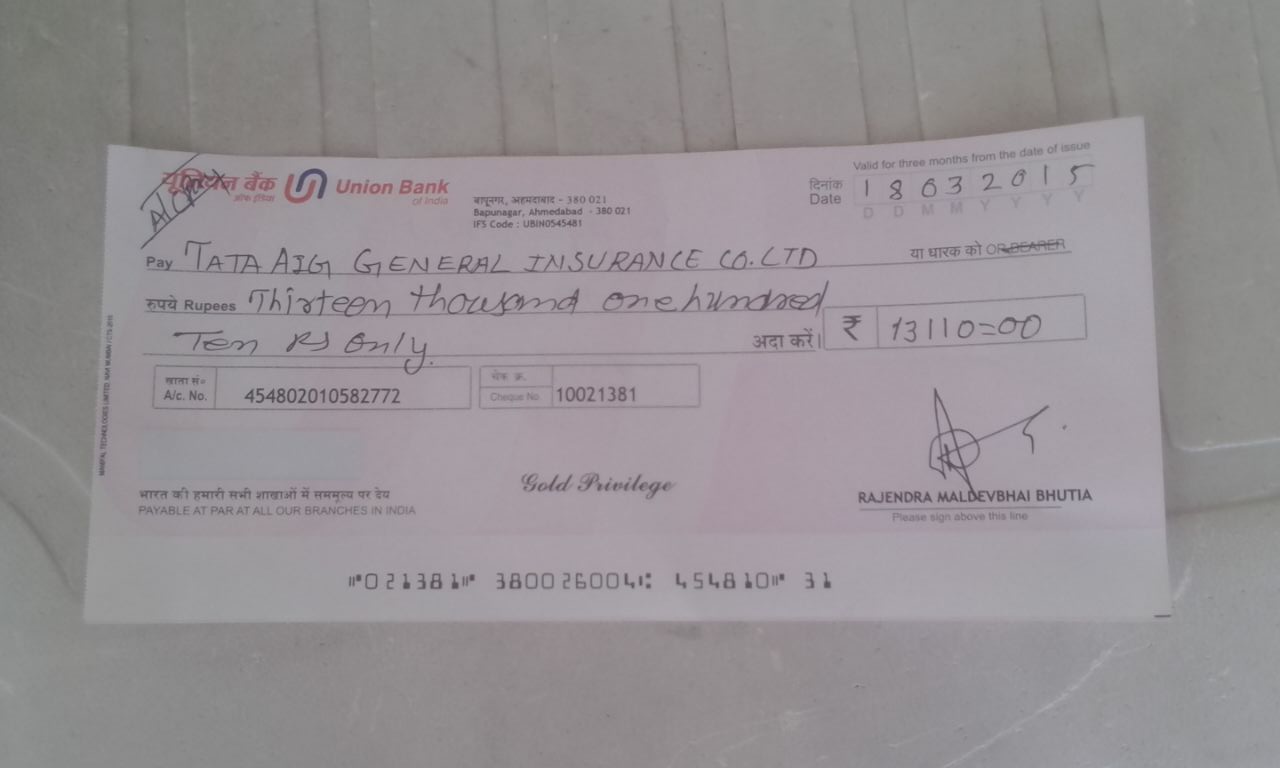 A/c Payee
यूनियन बैंक
ऑफ इंडिया
Union Bank
of India
बापूनगर, अहमदाबाद - 380 021
Bapunagar, Ahmedabad - 380 021
IFS Code : UBIN0545481
Valid for three months from the date of issue
दिनांक
Date
1 8 0 3 2 0 1 5
D D M M Y Y Y Y
Pay TATA AIG GENERAL INSURANCE CO. LTD या धारक को OR BEARER
रुपये Rupees Thirteen thousand one hundred
Ten RS Only. अदा करें। ₹ 13110=00
खाता सं०
A/c. No. 454802010582772
चेक क्र.
Cheque No. 10021381
Gold Privilege
भारत की हमारी सभी शाखाओं में सममूल्य पर देय
PAYABLE AT PAR AT ALL OUR BRANCHES IN INDIA
RAJENDRA MALDEVBHAI BHUTIA
Please sign above this line
⑈021381⑈ 380026004⑆ 454810⑈ 31